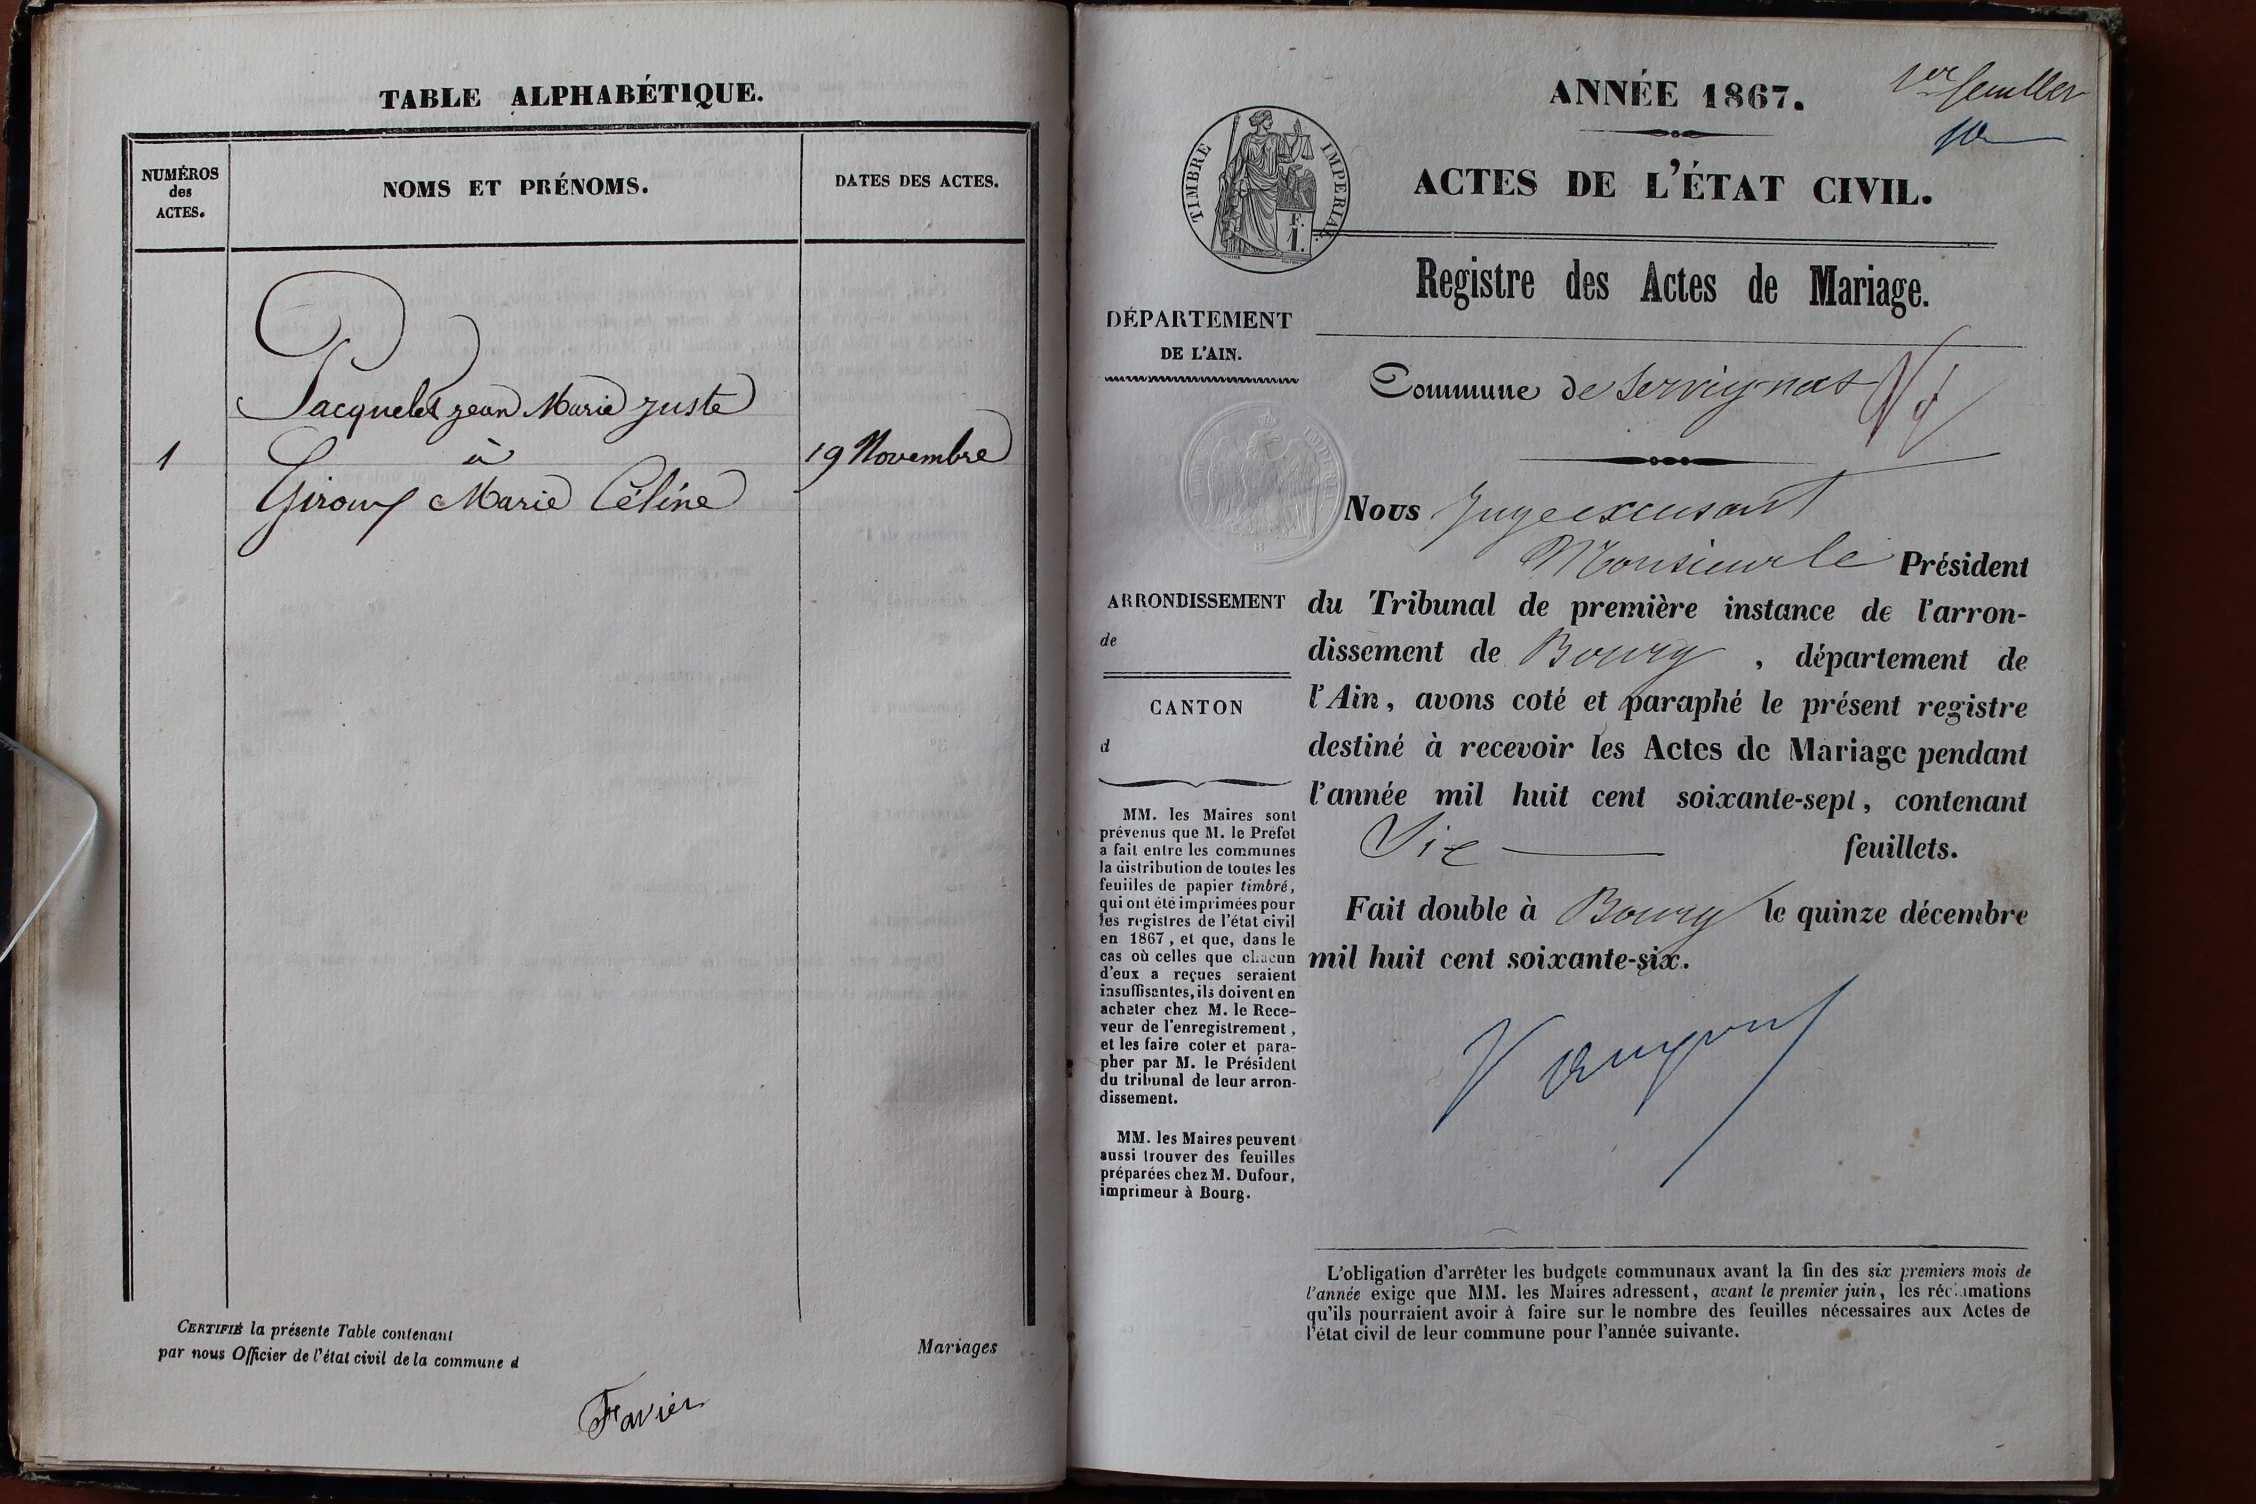 TABLE ALPHABÉTIQUE.
NUMÉROS
des
ACTES.
NOMS ET PRÉNOMS.
DATES DES ACTES.
Pacquelet jean Marie juste
1
à
19 Novembre
Giroux Marie Céline
CERTIFIÉ la présente Table contenant
Mariages
par nous Officier de l'état civil de la commune d
Favier
1er feuillet
ANNÉE 1867.
TIMBRE IMPERIAL
F.
1.
ACTES DE L'ÉTAT CIVIL.
Registre des Actes de Mariage.
DÉPARTEMENT
DE L'AIN.
Commune de Servignat
ARRONDISSEMENT
de
CANTON
d
MM. les Maires sont
prévenus que M. le Préfet
a fait entre les communes
la distribution de toutes les
feuilles de papier timbré,
qui ont été imprimées pour
les registres de l'état civil
en 1867, et que, dans le
cas où celles que chacun
d'eux a reçues seraient
insuffisantes, ils doivent en
acheter chez M. le Rece-
veur de l'enregistrement,
et les faire coter et para-
pher par M. le Président
du tribunal de leur arron-
dissement.
MM. les Maires peuvent
aussi trouver des feuilles
préparées chez M. Dufour,
imprimeur à Bourg.
Nous Juge excusant
Monsieur le Président
du Tribunal de première instance de l'arron-
dissement de Bourg, département de
l'Ain, avons coté et paraphé le présent registre
destiné à recevoir les Actes de Mariage pendant
l'année mil huit cent soixante-sept, contenant
Six feuillets.
Fait double à Bourg le quinze décembre
mil huit cent soixante-six.
L'obligation d'arrêter les budgets communaux avant la fin des six premiers mois de
l'année exige que MM. les Maires adressent, avant le premier juin, les réclamations
qu'ils pourraient avoir à faire sur le nombre des feuilles nécessaires aux Actes de
l'état civil de leur commune pour l'année suivante.